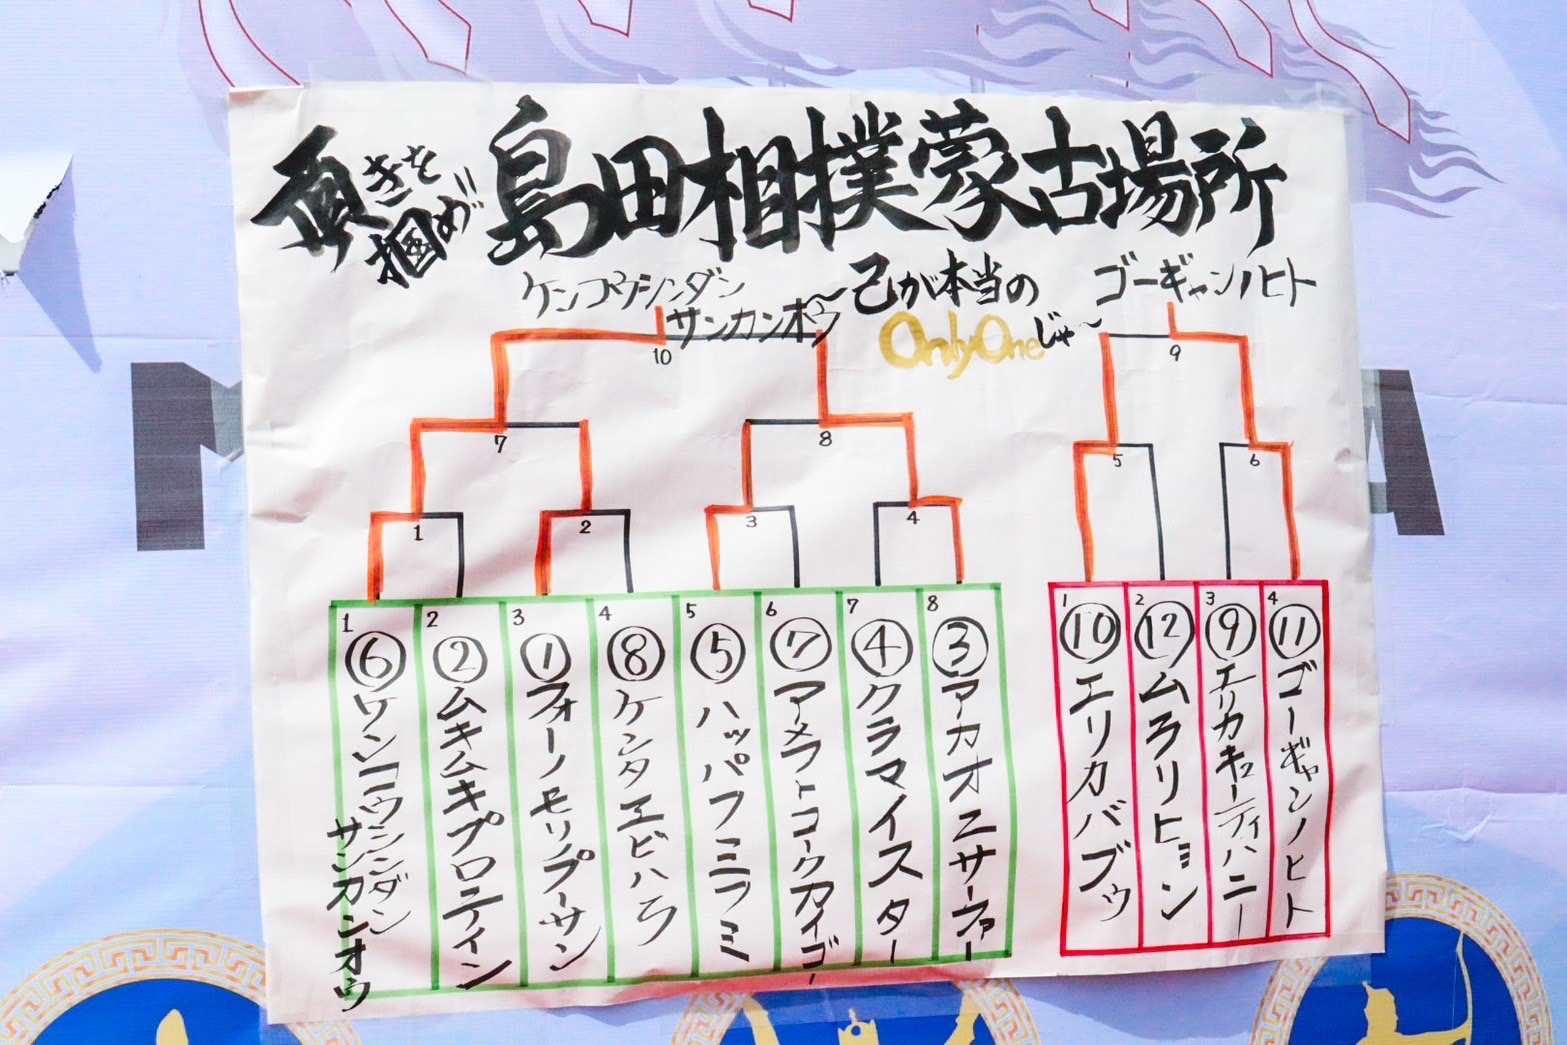 頂きを
掴め!!
島田相撲蒙古場所
ケンコウシンダン
サンカンオウ
〜己が本当の
OnlyOneじゃ〜
ゴーギャンノヒト
10
9
7
8
5
6
1
2
3
4
1
⑥ケンコウシンダン
サンカンオウ
2
②ムキムキプロテイン
3
①フォーノモリノプーサン
4
⑧ケンタヱビハラ
5
⑤ハッパフミフミ
6
⑦アメフトコークカイゴー
7
④クラマイスター
8
③アカオニサーファー
1
⑩エリカバブゥ
2
⑫ムラリヒョン
3
⑨エリカキューティハニー
4
⑪ゴーギャンノヒト
M
A